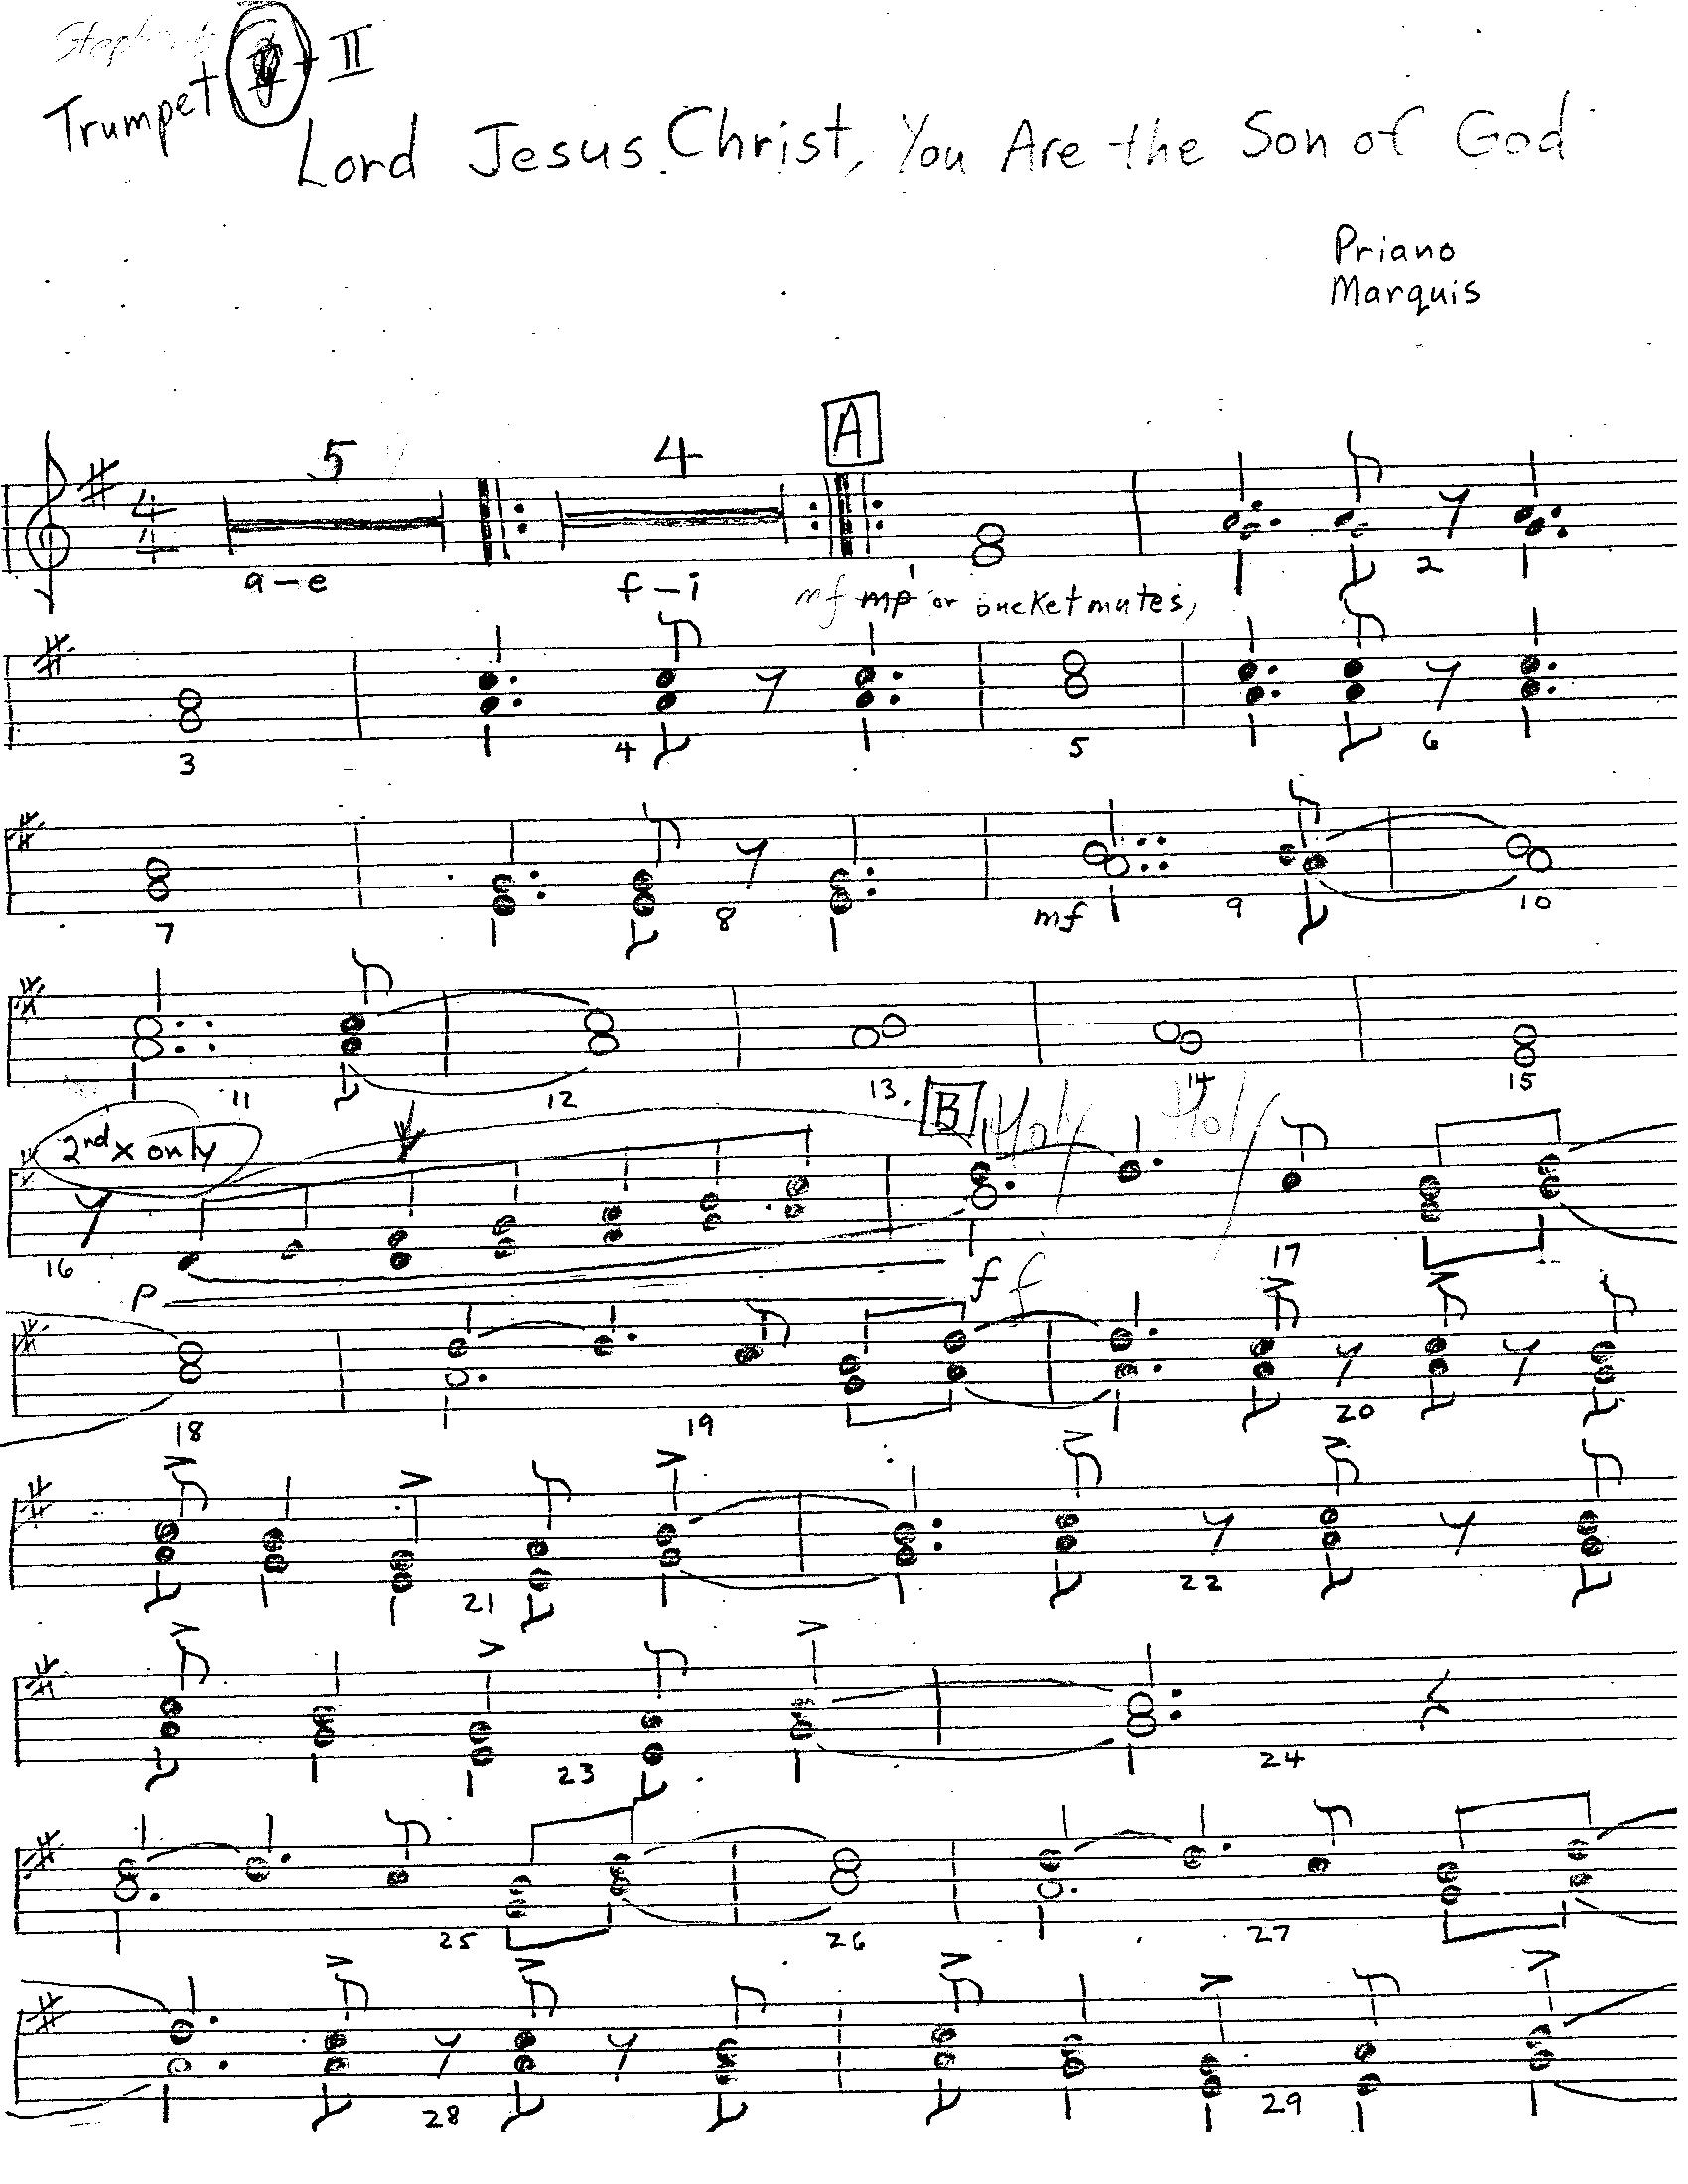 Trumpet I + II
Lord Jesus Christ, You Are the Son of God
Priano
Marquis
A
5 4
4
4
a-e f-i mf mp or bucket mutes, 2
3 4 5 6
7 8 mf 9 10
11 12 13. 14 15
B Holy Holy
2nd x only
16 17
p f f
18 19 20
21 22
23 24
25 26 27
28 29